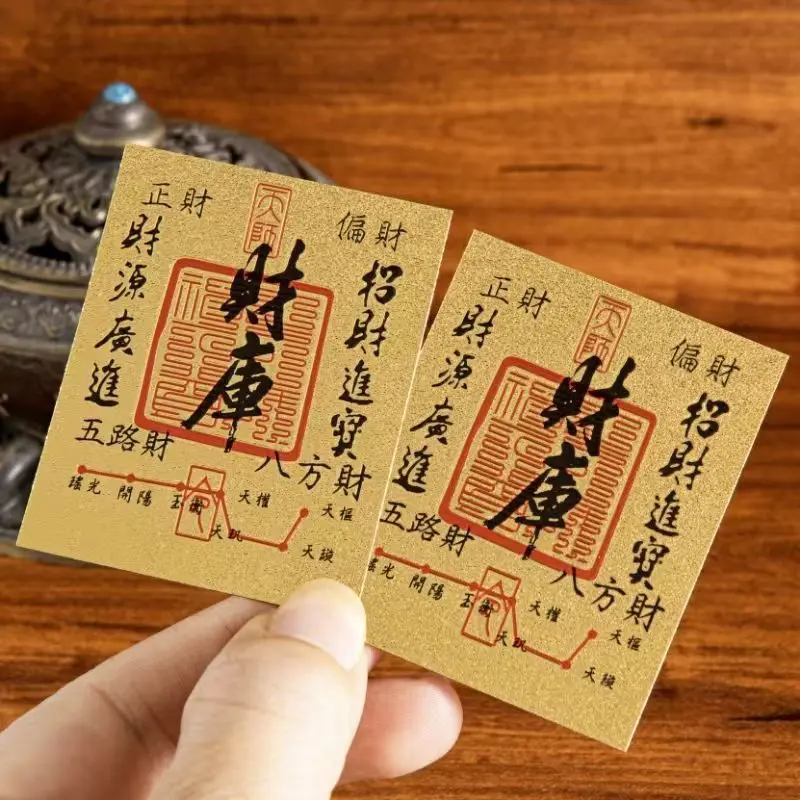 正財
天師
偏財
財源廣進
財庫
招財進寶
五路財
八方財
瑤光
開陽
玉衡
天權
天璣
天樞
天璇
正財
天師
偏財
財源廣進
財庫
招財進寶
五路財
八方財
瑤光
開陽
玉衡
天權
天璣
天樞
天璇